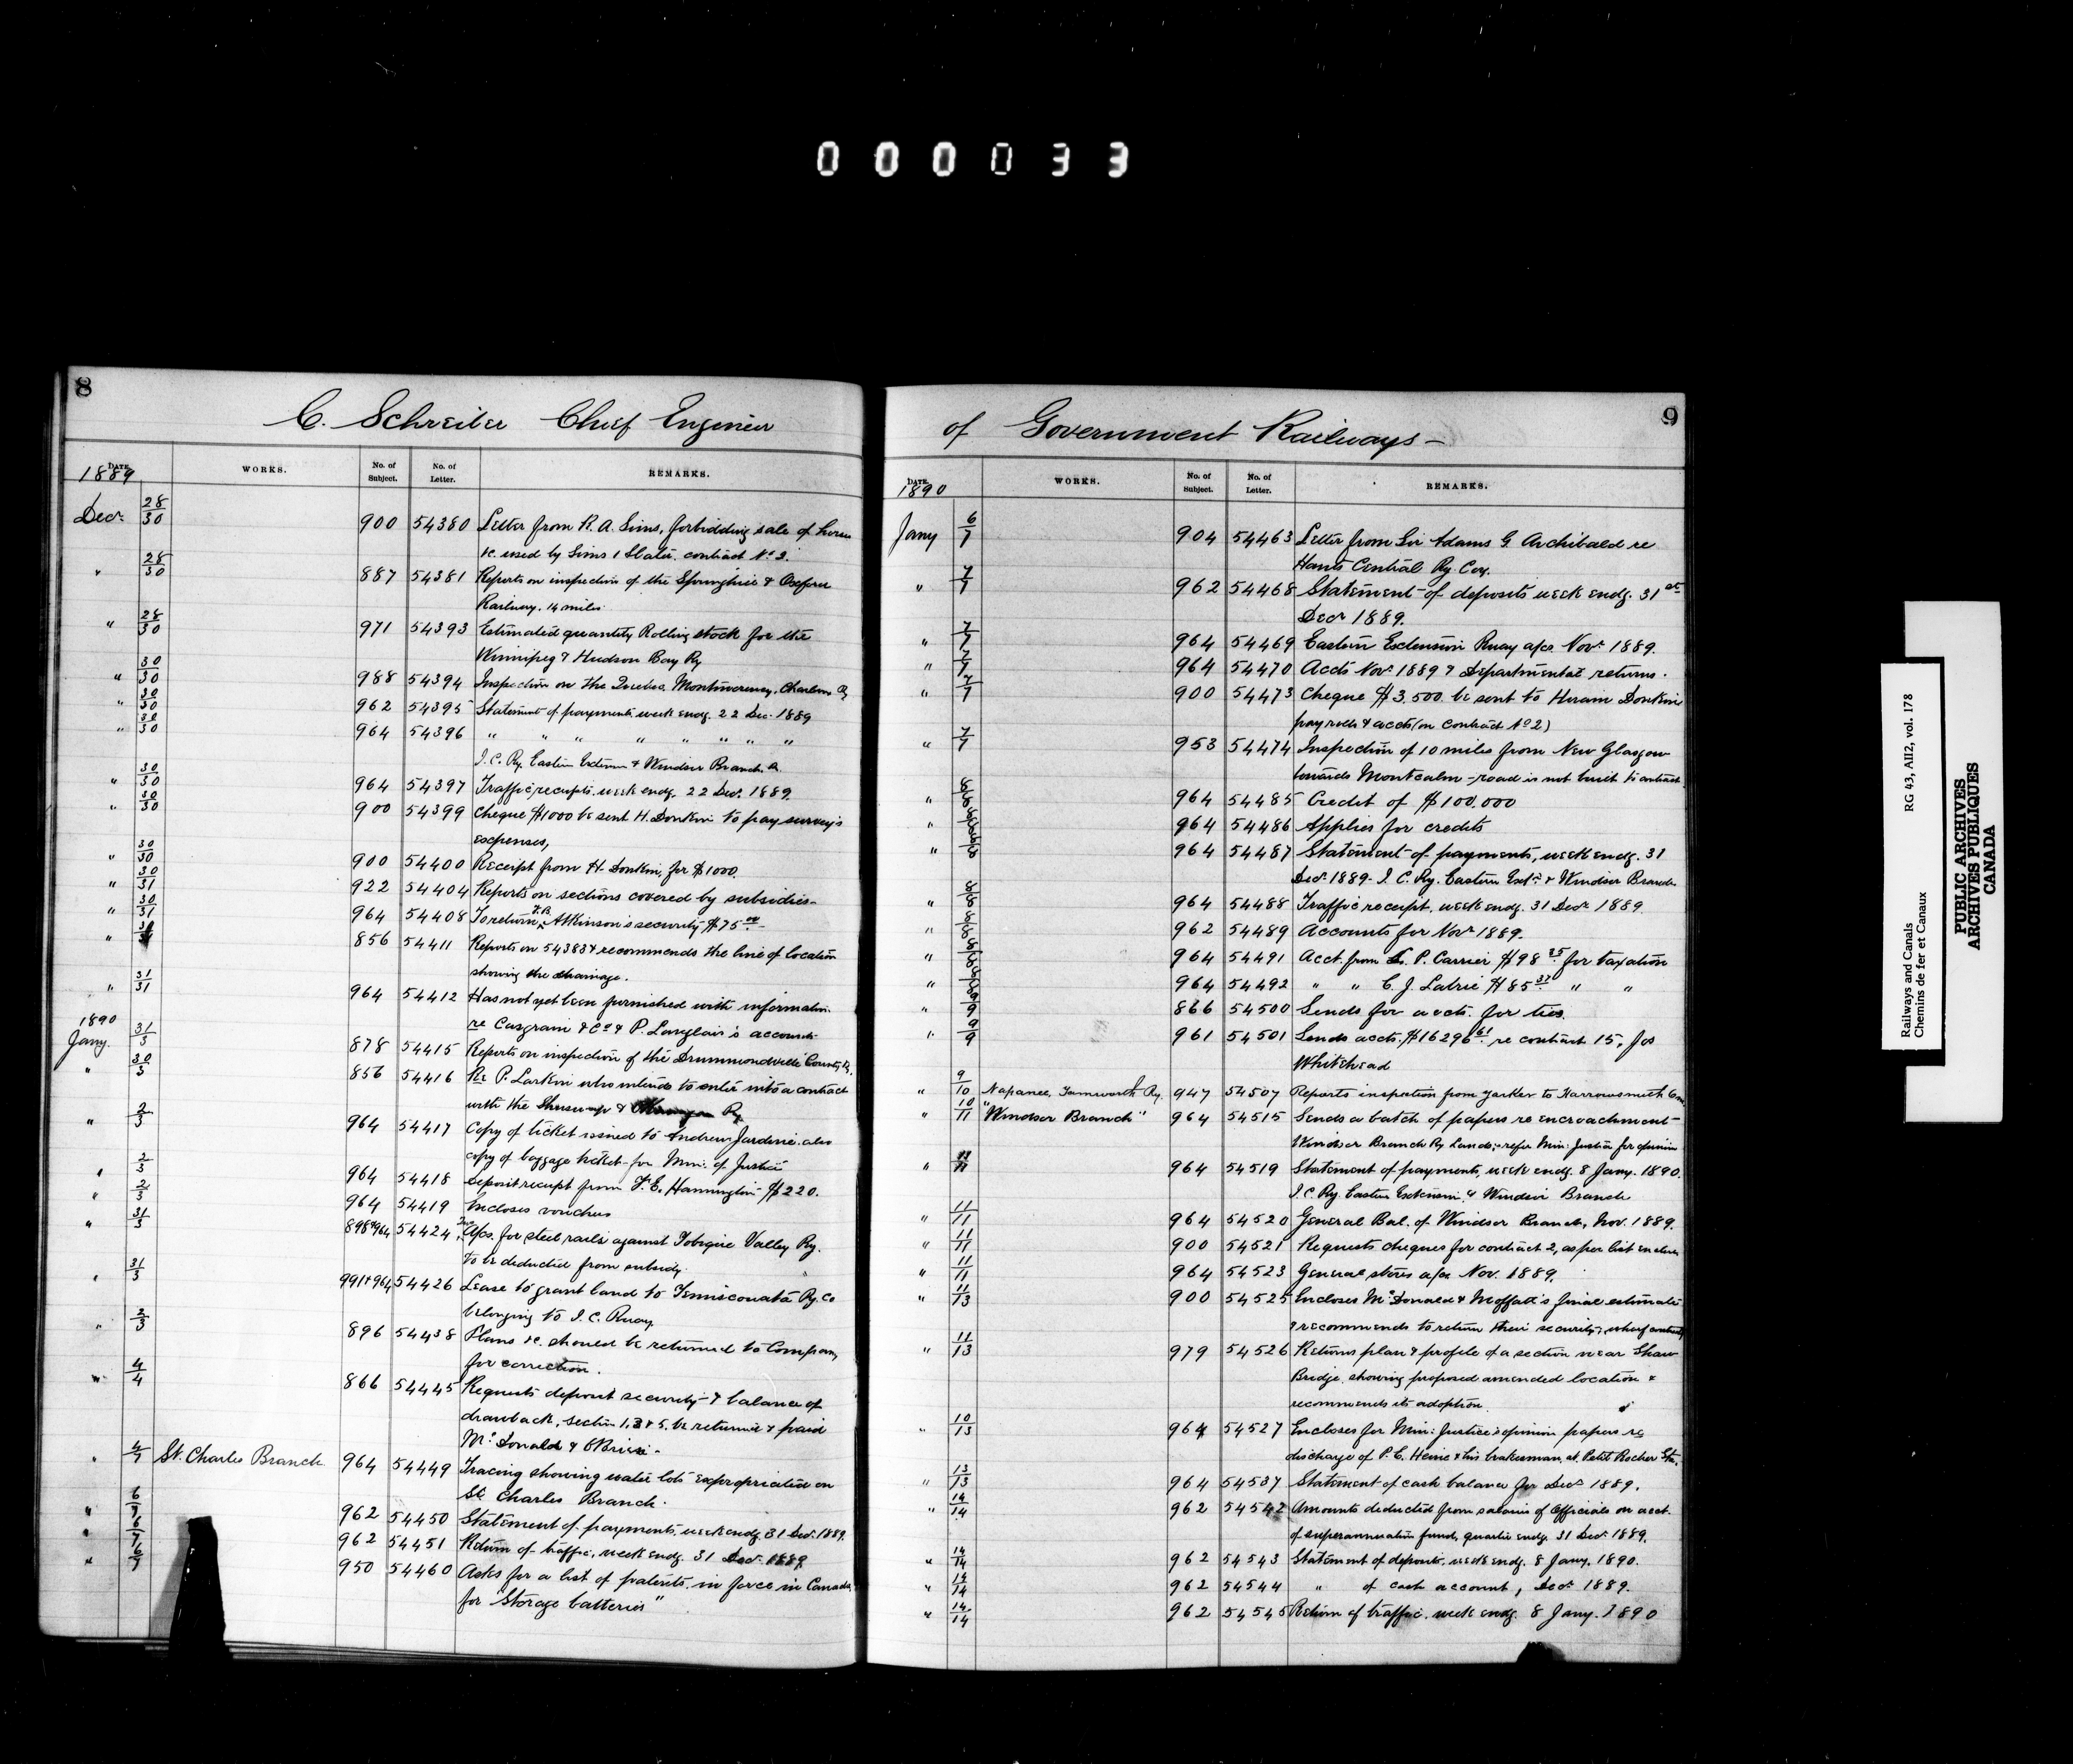 000033
8
C. Schreiber Chief Engineer
DATE. WORKS. No. of Subject. No. of Letter. REMARKS.
1889
Decr. 28/30 900 54380 Letter from R. A. Sims, forbidding sale of horses
&c. used by Sims & Slater. contract No. 3.
" 28/30 887 54381 Reports on inspection of the Springhill & Oxford
Railway. 14 miles
" 28/30 971 54393 Estimated quantity Rolling stock for the
Winnipeg & Hudson Bay Ry
" 30/30 988 54394 Inspection on the Quebec, Montmorency, Charlevoix Ry
" 30/30 962 54395 Statement of payments, week endg. 22 Dec. 1889
" 30/30 964 54396 " " " " " " " "
I. C. Ry. Eastern Extension & Windsor Branch
" 30/30 964 54397 Traffic receipts, week endg. 22 Decr. 1889.
" 30/30 900 54399 Cheque $1000 be sent H. Donkin to pay survey's
expenses,
" 30/30 900 54400 Receipt from H. Donkin, for $1000.
" 30/31 922 54404 Reports on sections covered by subsidies-
" 30/31 964 54408 To return Atkinson's security $75.00-
" 856 54411 Reports on 54383 & recommends the line of location
showing the chainage.
" 31/31 964 54412 Has not yet been furnished with information
re Casgrain & Co & P. Langlais's accounts
1890
Jany. 31/3 878 54415 Reports on inspection of the Drummondville County Ry.
" 30/3 856 54416 Re P. Larkin who intends to enter into a contract
with the Shuswap & Okanagan Ry
" 2/3 964 54417 Copy of ticket issued to Andrew Jardine. also
copy of baggage ticket - for Min: of Justice
" 2/3 964 54418 Deposit receipt from Hannington $220.
" 2/3 964 54419 Encloses vouchers
" 31/3 898 & 964 54424 A/cs. for steel rails against Tobique Valley Ry.
To be deducted from subsidy.
" 31/3 991 & 964 54426 Lease to grant land to Temiscouata Ry. Co
belonging to I. C. Ruay.
" 2/3 896 54438 Plans &c. should be returned to Company
for correction.
" 4/4 866 54445 Requests deposit security & balance of
drawback, section 1, 3 & 5. be returned & paid
Mc.Donald & O'Brien -
" 4/7 St. Charles Branch 964 54449 Tracing showing water lots expropriated on
St. Charles Branch.
" 6/7 962 54450 Statement of payments, week endg. 31 Decr. 1889.
" 6/7 962 54451 Return of traffic, week endg. 31 Decr. 1889
" 6/7 950 54460 Asks for a list of patents in force in Canada
for "Storage batteries"
9
of Government Railways -
DATE. WORKS. No. of Subject. No. of Letter. REMARKS.
1890
Jany 6/7 904 54463 Letter from Sir Adams G. Archibald re
Hants Central Ry. Coy.
" 7/7 962 54468 Statement of deposits week endg. 31st
Decr 1889.
" 7/7 964 54469 Eastern Extension Ruay a/cs Novr. 1889.
" 7/7 964 54470 Accts Novr. 1889 & Departmental returns.
" 7/7 900 54473 Cheque $3,500. be sent to Hiram Donkin
pay rolls & accts (on contract No 2)
" 7/7 953 54474 Inspection of 10 miles from New Glasgow
towards Montcalm - road is not built to contract
" 8/8 964 54485 Credit of $100,000
" 8/8 964 54486 Applies for credits
" 8/8 964 54487 Statement of payments, week endg. 31
Decr. 1889 - I. C. Ry. Eastern Extn. & Windsor Branch
" 8/8 964 54488 Traffic receipt, week endg. 31 Decr 1889.
" 8/8 962 54489 Accounts for Novr 1889.
" 8/8 964 54491 Acct. from L. P. Carrier $98.25 for taxation
" 8/8 964 54492 " " C. J. Labrie $85.37 " "
" 9/9 866 54500 Sends for accts. for ties.
" 9/9 961 54501 Sends accts. $16296.61 re contract 15, Jos
Whitehead
" 9/10 Napanee, Tamworth Ry. 947 54507 Reports inspection from Yarker to Harrowsmith 6 m.
" 10/11 "Windsor Branch" 964 54515 Sends a batch of papers re encroachment
Windsor Branch Ry Lands; refer Min: Justice for opinion
" 11/11 964 54519 Statement of payments, week endg. 8 Jany. 1890.
I. C. Ry. Eastern Extension & Windsor Branch
" 11/11 964 54520 General Bal. of Windsor Branch, Nov. 1889.
" 11/11 900 54521 Requests cheques for contract 2, as per list enclosed
" 11/11 964 54523 General stores a/cs Nov. 1889.
" 11/13 900 54525 Encloses Mc.Donald & Moffatt's final estimate
& recommends to return their security, wharf contract
" 11/13 979 54526 Returns plan & profile of a section near Shaw
Bridge, showing proposed amended location &
recommends its adoption.
" 10/13 964 54527 Encloses for Min: Justice's opinion papers re
discharge of P. E. Heine & his brakesman, at Petit Rocher Sta.
" 13/13 964 54537 Statement of cash balance for Decr 1889.
" 14/14 962 54542 Amounts deducted from salaries of Officials on acct.
of superannuation fund, quarter endg. 31 Decr. 1889.
" 14/14 962 54543 Statement of deposits, week endg. 8 Jany. 1890.
" 14/14 962 54544 " of cash account, Decr. 1889.
" 14/14 962 54545 Return of traffic, week endg. 8 Jany. 1890
Railways and Canals RG 43, AII2, vol. 178
Chemins de fer et Canaux
PUBLIC ARCHIVES
ARCHIVES PUBLIQUES
CANADA